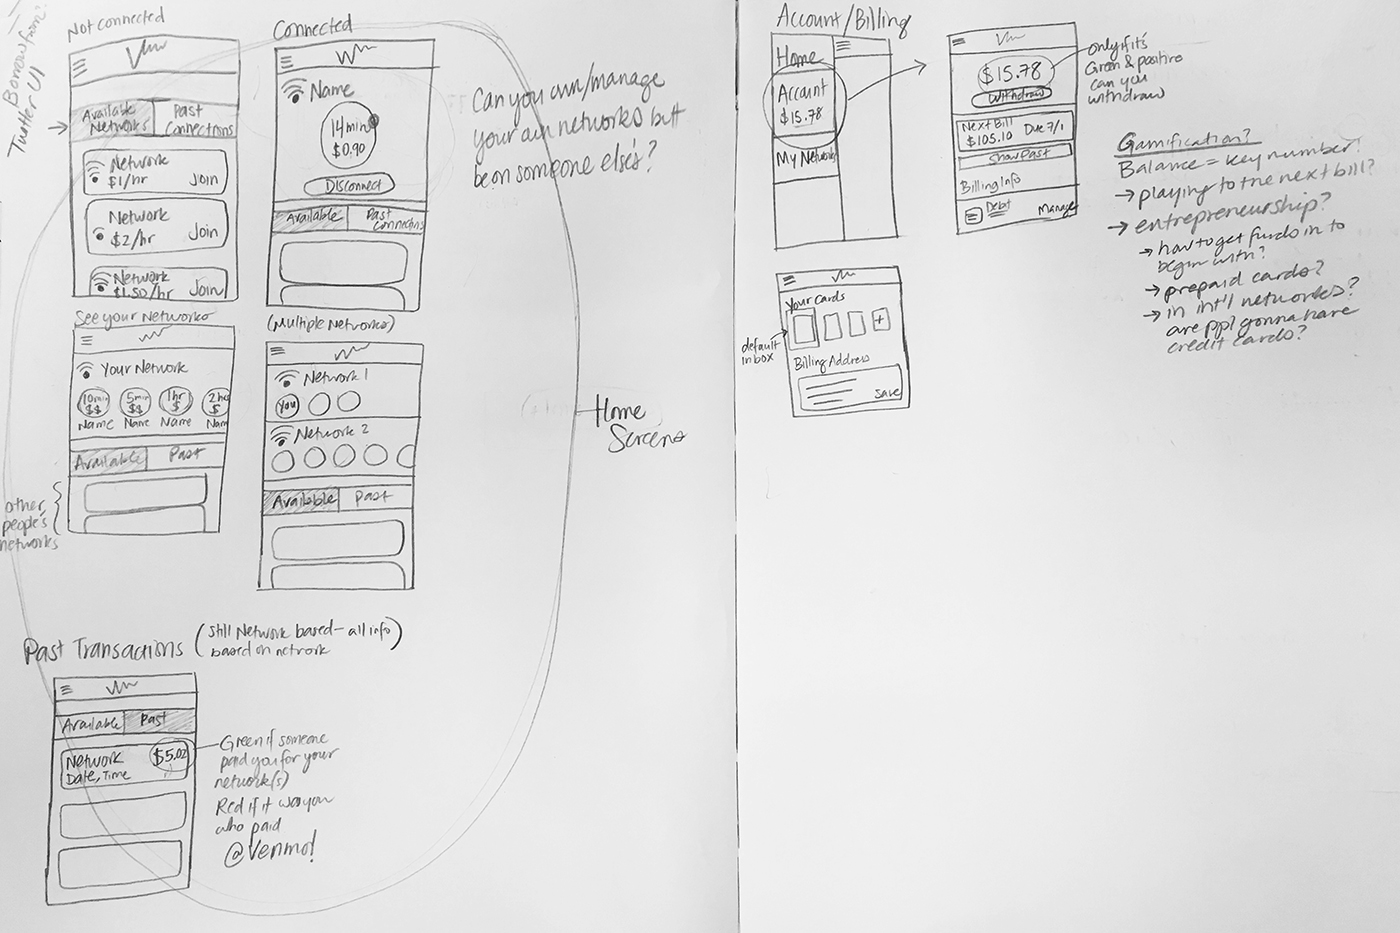 Borrow from?
Twitter UI
Not connected
Available
Networks
Past
Connections
Network
$1/hr
Join
Network
$2/hr
Join
Network
$1.50/hr
Join
Connected
Name
14 min
$0.90
Disconnect
Available
Past
Connections
Can you own/manage
your own networks but
be on someone else's?
See your Networks
Your Network
10 min
$$
Name
5 min
$$
Name
1 hr
$
Name
2 hr
$
Nam
Available
Past
other
people's
networks
(Multiple Networks)
Network 1
You
Network 2
Available
Past
Home
Screens
Past Transactions
(Still Network based - all info
based on network)
Available
Past
Network
Date, Time
$5.02
Green if someone
paid you for your
network(s)
Red if it was you
who paid
@Venmo!
Account/Billing
Home
Account
$15.78
My Network
$15.78
Withdraw
Next Bill
$105.10
Due 7/1
Show Past
Billing Info
Debt
Manage
only if it's
Green & positive
can you
withdraw
Your Cards
+
default
in box
Billing Address
Save
Gamification?
Balance = key number!
→ playing to the next bill?
→ entrepreneurship?
→ how to get funds in to
begin with?
→ prepaid cards?
→ in int'l networks?
are ppl gonna have
credit cards?